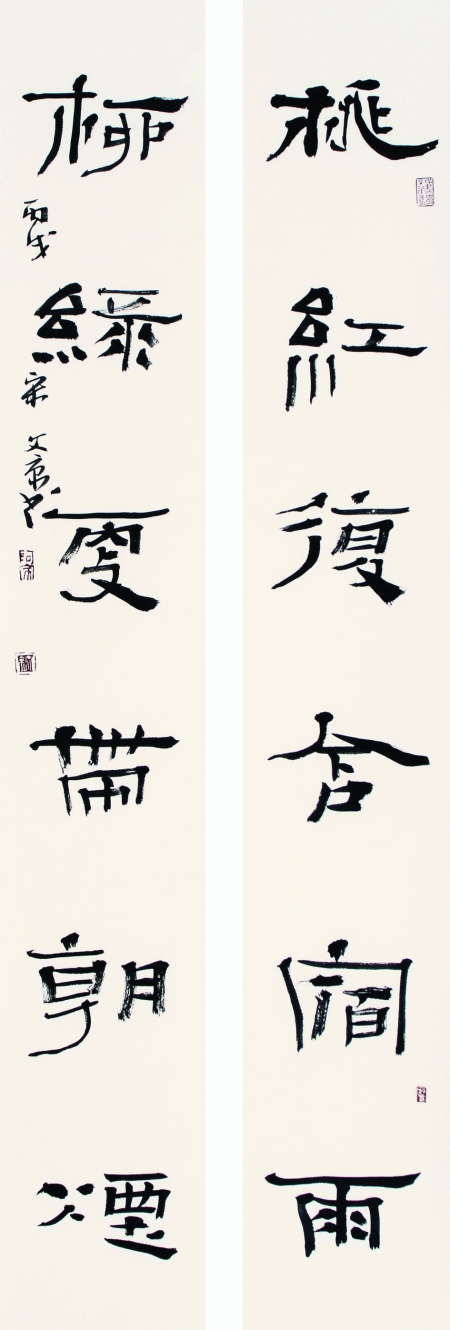 桃紅復含宿雨
柳綠更帶朝煙
丙戌宋文京书